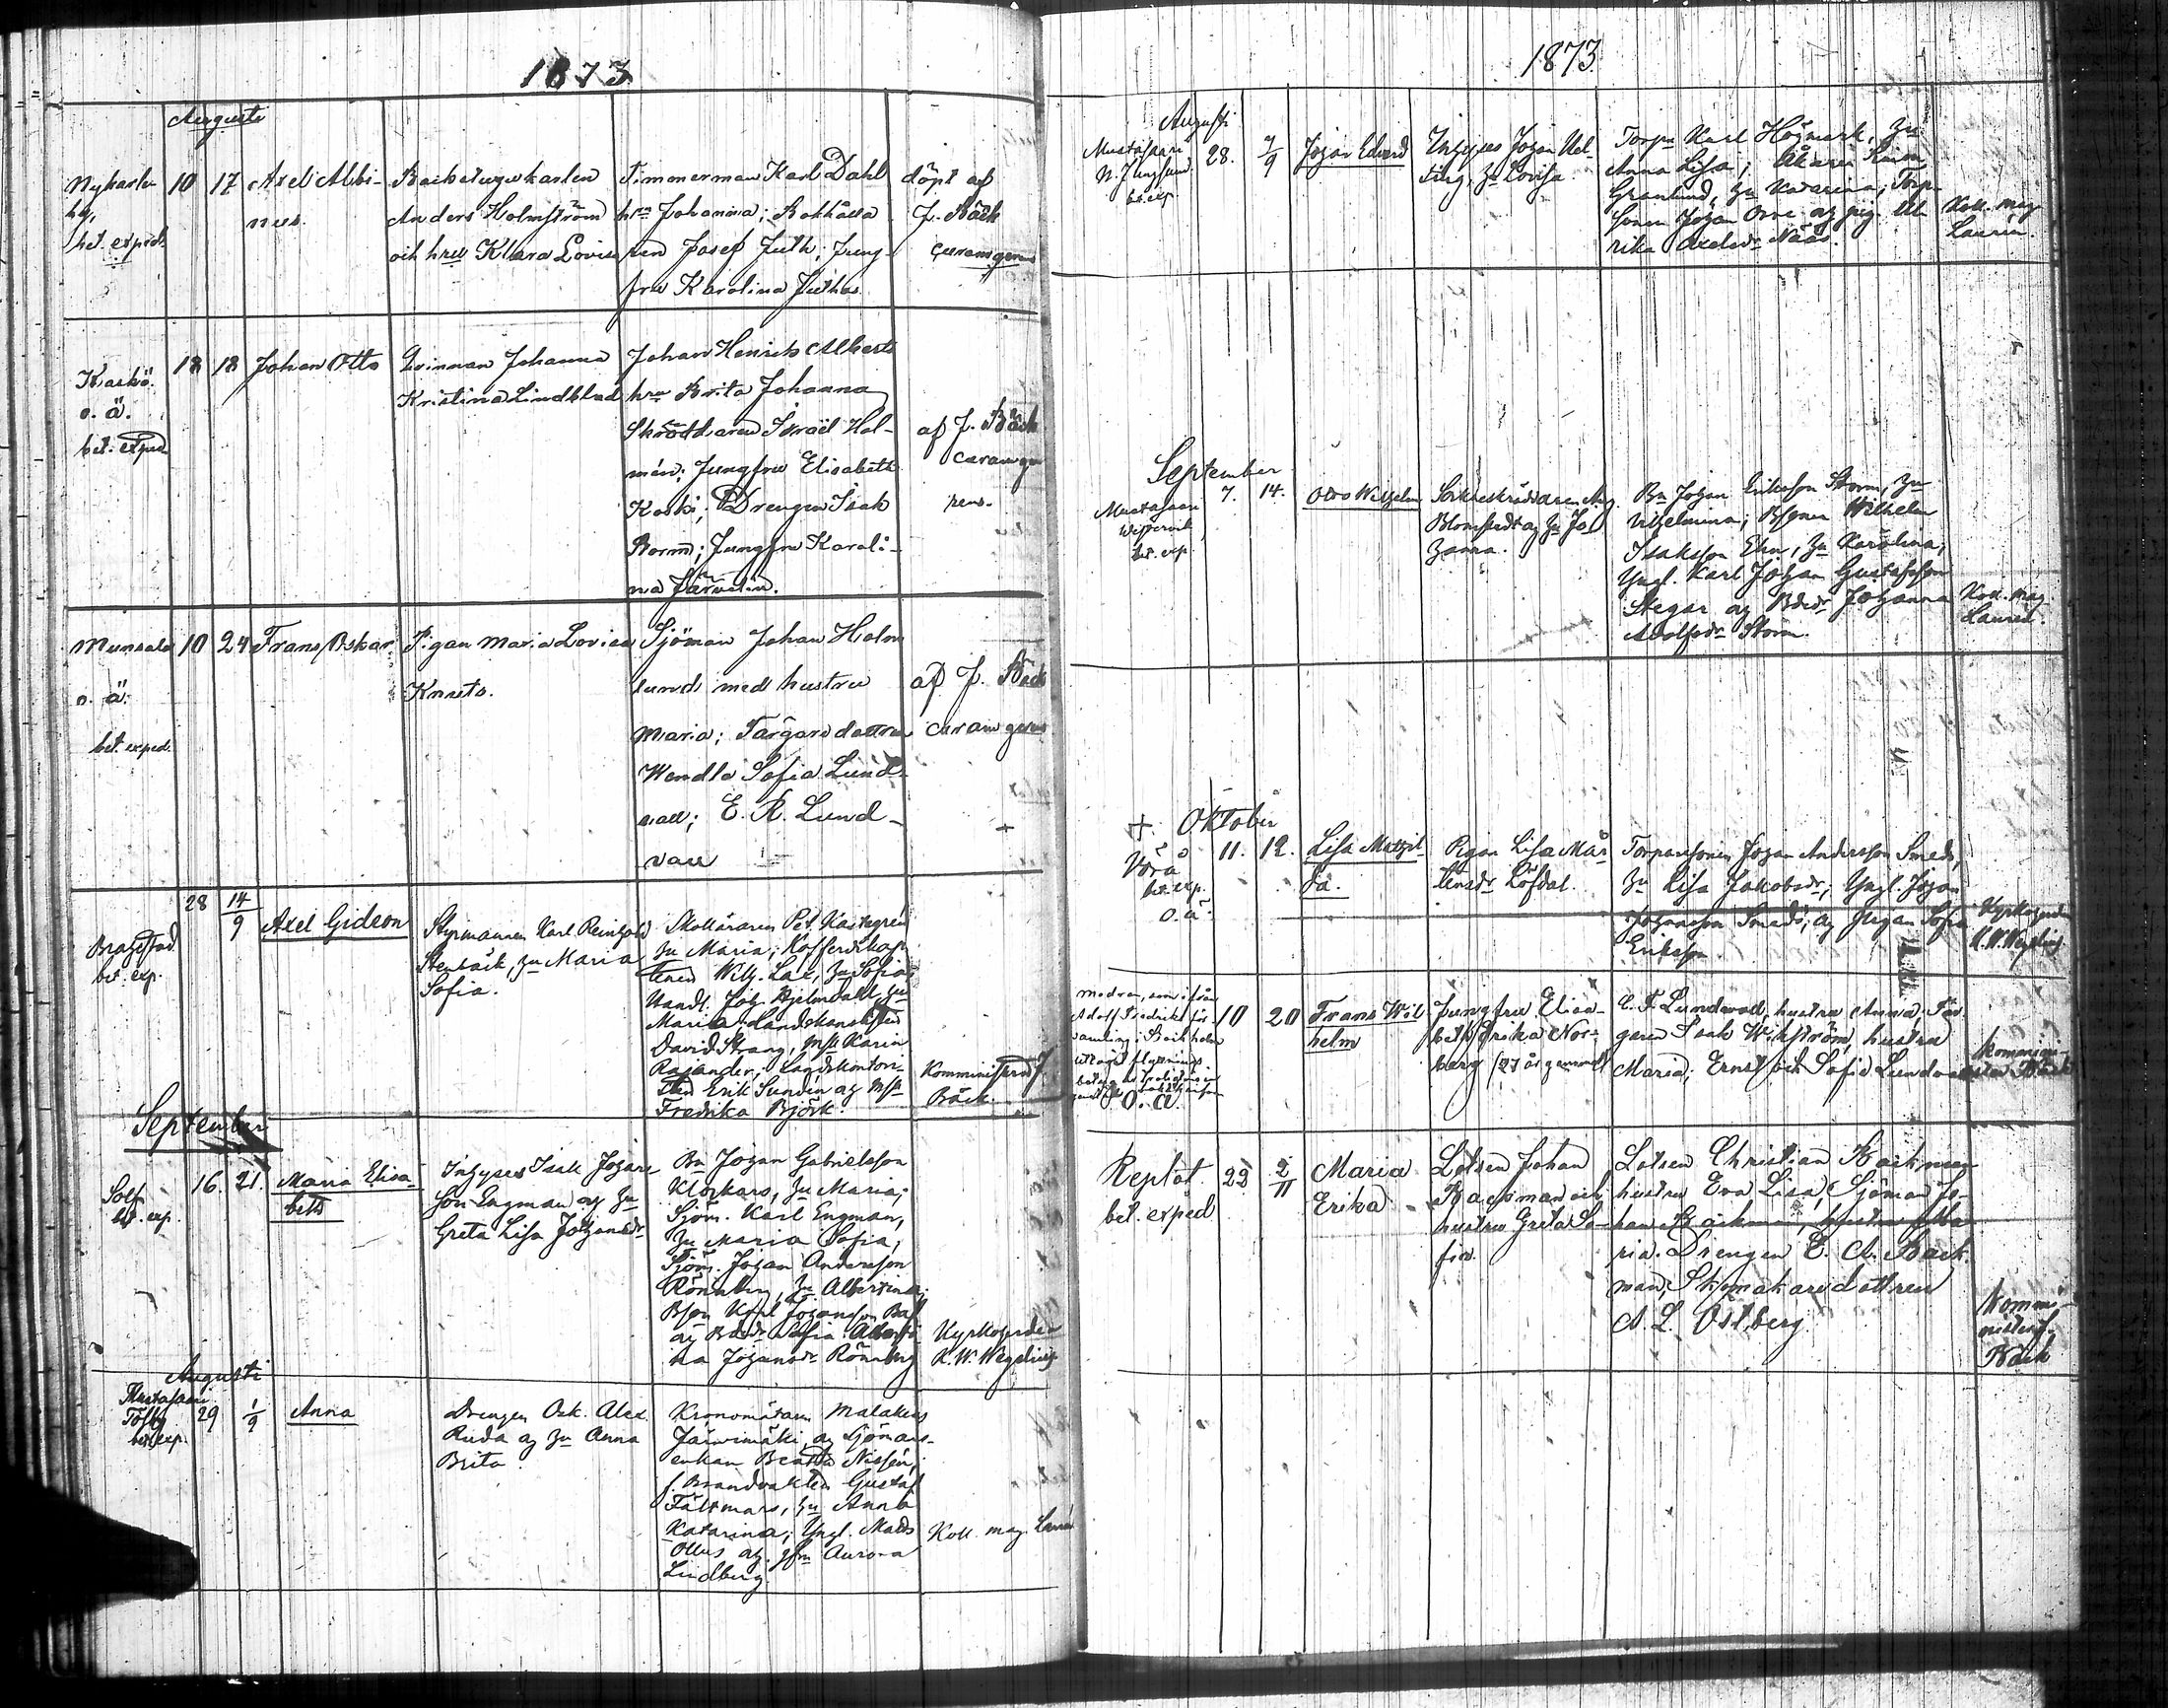 1873
Augusti
Nykarle
by,
bet. exped.
10 17 Axel Albi-
nus.
Backstugukarlen
Anders Holmström
och hru Klara Lovisa
Timmerman Karl Dahl
hru Johanna; Bokhålla
ren Josef Juth; Jung-
fru Karolina Juthas.
döpt af
J. Bäck
Kaskö.
o. ä.
bet. exped
18 18 Johan Otto
Qvinnan Johanna
Kristina Lindblad
Johan Henrik Alberts
hru Brita Johanna
Skräddaren Israel Hol-
mén; Jungfru Elisabeth
Koski; Drengen Isak
Jungfru Karoli-
na
af J. Bäck
Munsala
o. ä.
bet. exped.
10 24 Frans Oskar
Pigan Maria Lovisa
Knuts.
Sjöman Johan Holm
lund med hustru
Maria; Färgaredottren
Wendla Sofia Lund-
vall; E. R. Lund-
vall
af J. Bäck
28 14/9 Axel Gideon
Brahestad
bet. exp.
Styrmannen Karl Reinhold
Stenbäck, hu Maria
Sofia.
hu Maria; Kofferdikap-
tenen Wilh. Lax, hu Sofia;
Handl. Joh. Hjelmdahl, hu
Maria; Landskanslisten
David Strang, Mll Karin
Rajander; Landskontori-
sten Erik Sundén og Mll
Fredrika Björk.
Kommunisten J.
Bäck.
September
Solf
bet. exp.
16. 21. Maria Elisa-
beth
Inhyses Isak Johans
son Engman og hu
Greta Lisa Johansdr
Bn Johan Gabrielsson
Klockars, hu Maria;
Sjöm. Karl Engman,
hu Maria Sofia;
Sjöm. Johan Andersson
Rönnberg, hu Albertina;
Bson Karl Johansson
og Bdr Sofia Alberti-
na Johansdr Rönnberg
Kyrkoherden
K. W. Wegelius
Augusti
Mustasaari
Tölby
bet. exp.
29 1/9 Anna
Drengen Osk. Alex.
Ruda og hu Anna
Brita.
Kronomätaren Malakias
Järvimäki og Sjömans-
enkan Beatta Nissén;
f. Brandvakten Gustaf
Fältmars, hu Anna
Katarina; Yngl. Mats
Ollus og jfru Aurora
Lindberg.
Koll. mag. Laurén
1873
Augusti
Mustasaari
N. Jungsund
bet. exp.
28. 7/9 Johan Edvard
Inhyses Johan Hel-
sing, hu Lovisa.
Torpn Karl Högmark, hu
Anna Lisa;
Granlund, hu Katarina; Torp-
sonen Johan og pig. Ul-
rika Axelsdr Näås.
Koll. mag.
Laurén.
September
Mustasaari
Westervik
bet. exp.
7. 14. Otto Wilhelm
Sockneskräddaren Aug.
Blomstedt og hu Jo-
hanna.
Bn Johan Eriksson Storm, hu
Vilhelmina; Bsonen Wilhelm
Isaksson Ehn, hu Karolina;
Yngl. Karl Johan Gustafsson
Stegar og Bdr Johanna
Adolfsdr Storm.
Koll. mag.
Laurén.
+. Oktober
Vörå
bet. exp.
o. ä.
11. 12. Lisa Mathil-
da.
Pigan Lisa Mår-
tensdr Löfdal.
Torparesonen Johan Andersson Smeds,
hu Lisa Jakobsdr; Yngl. Johan
Johansson Smeds; og Pigan Sofia
Eriksson.
Kyrkoherden
K. W. Wegelius
modren, som ifrån
Adolf Fredriks för-
samling i Stockholm
uttagit flyttnings
o. ä.
10 20 Frans Wil
helm
Jungfru Elisa-
beth Erika Nor-
berg (27 år gammal)
C. F. Lundwall, hustru Anna; Fär
garen Isak Wikström, hustru
Maria; Ernst och Sofia Lundwall
Replot
bet. exped
22 2/11 Maria
Erika
Lotsen Johan
Backman och
hustru Greta So-
fia.
Lotsen Christian Backman
hustru Eva Lisa; Sjöman Jo-
han Backman, hustru Ma
ria. Drengen E. A. Back
man, Skomakaredottren
A. L. Östberg.
Kommi-
nister J.
Bäck